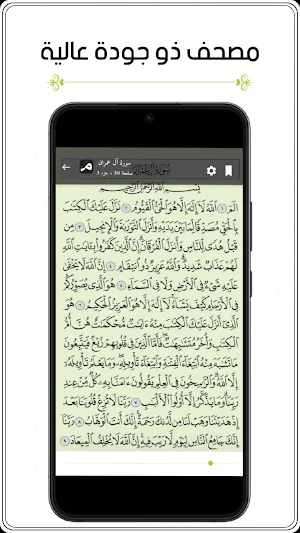 مصحف ذو جودة عالية
سورة آل عمران
صفحة 50 ، جزء 3
سورة آل عمران
بِسْمِ اللَّهِ الرَّحْمَٰنِ الرَّحِيمِ
الٓمٓ ١ ٱللَّهُ لَآ إِلَٰهَ إِلَّا هُوَ ٱلْحَىُّ ٱلْقَيُّومُ ٢ نَزَّلَ عَلَيْكَ ٱلْكِتَٰبَ
بِٱلْحَقِّ مُصَدِّقًا لِّمَا بَيْنَ يَدَيْهِ وَأَنزَلَ ٱلتَّوْرَىٰةَ وَٱلْإِنجِيلَ ٣ مِن
قَبْلُ هُدًى لِّلنَّاسِ وَأَنزَلَ ٱلْفُرْقَانَ إِنَّ ٱلَّذِينَ كَفَرُوا۟ بِـَٔايَٰتِ ٱللَّهِ
لَهُمْ عَذَابٌ شَدِيدٌ وَٱللَّهُ عَزِيزٌ ذُو ٱنتِقَامٍ ٤ إِنَّ ٱللَّهَ لَا يَخْفَىٰ
عَلَيْهِ شَىْءٌ فِى ٱلْأَرْضِ وَلَا فِى ٱلسَّمَآءِ ٥ هُوَ ٱلَّذِى يُصَوِّرُكُمْ
فِى ٱلْأَرْحَامِ كَيْفَ يَشَآءُ لَآ إِلَٰهَ إِلَّا هُوَ ٱلْعَزِيزُ ٱلْحَكِيمُ ٦ هُوَ
ٱلَّذِىٓ أَنزَلَ عَلَيْكَ ٱلْكِتَٰبَ مِنْهُ ءَايَٰتٌ مُّحْكَمَٰتٌ هُنَّ أُمُّ
ٱلْكِتَٰبِ وَأُخَرُ مُتَشَٰبِهَٰتٌ فَأَمَّا ٱلَّذِينَ فِى قُلُوبِهِمْ زَيْغٌ فَيَتَّبِعُونَ
مَا تَشَٰبَهَ مِنْهُ ٱبْتِغَآءَ ٱلْفِتْنَةِ وَٱبْتِغَآءَ تَأْوِيلِهِۦ وَمَا يَعْلَمُ تَأْوِيلَهُۥٓ
إِلَّا ٱللَّهُ وَٱلرَّٰسِخُونَ فِى ٱلْعِلْمِ يَقُولُونَ ءَامَنَّا بِهِۦ كُلٌّ مِّنْ عِندِ
رَبِّنَا وَمَا يَذَّكَّرُ إِلَّآ أُو۟لُوا۟ ٱلْأَلْبَٰبِ ٧ رَبَّنَا لَا تُزِغْ قُلُوبَنَا بَعْدَ
إِذْ هَدَيْتَنَا وَهَبْ لَنَا مِن لَّدُنكَ رَحْمَةً إِنَّكَ أَنتَ ٱلْوَهَّابُ ٨ رَبَّنَآ
إِنَّكَ جَامِعُ ٱلنَّاسِ لِيَوْمٍ لَّا رَيْبَ فِيهِ إِنَّ ٱللَّهَ لَا يُخْلِفُ ٱلْمِيعَادَ ٩